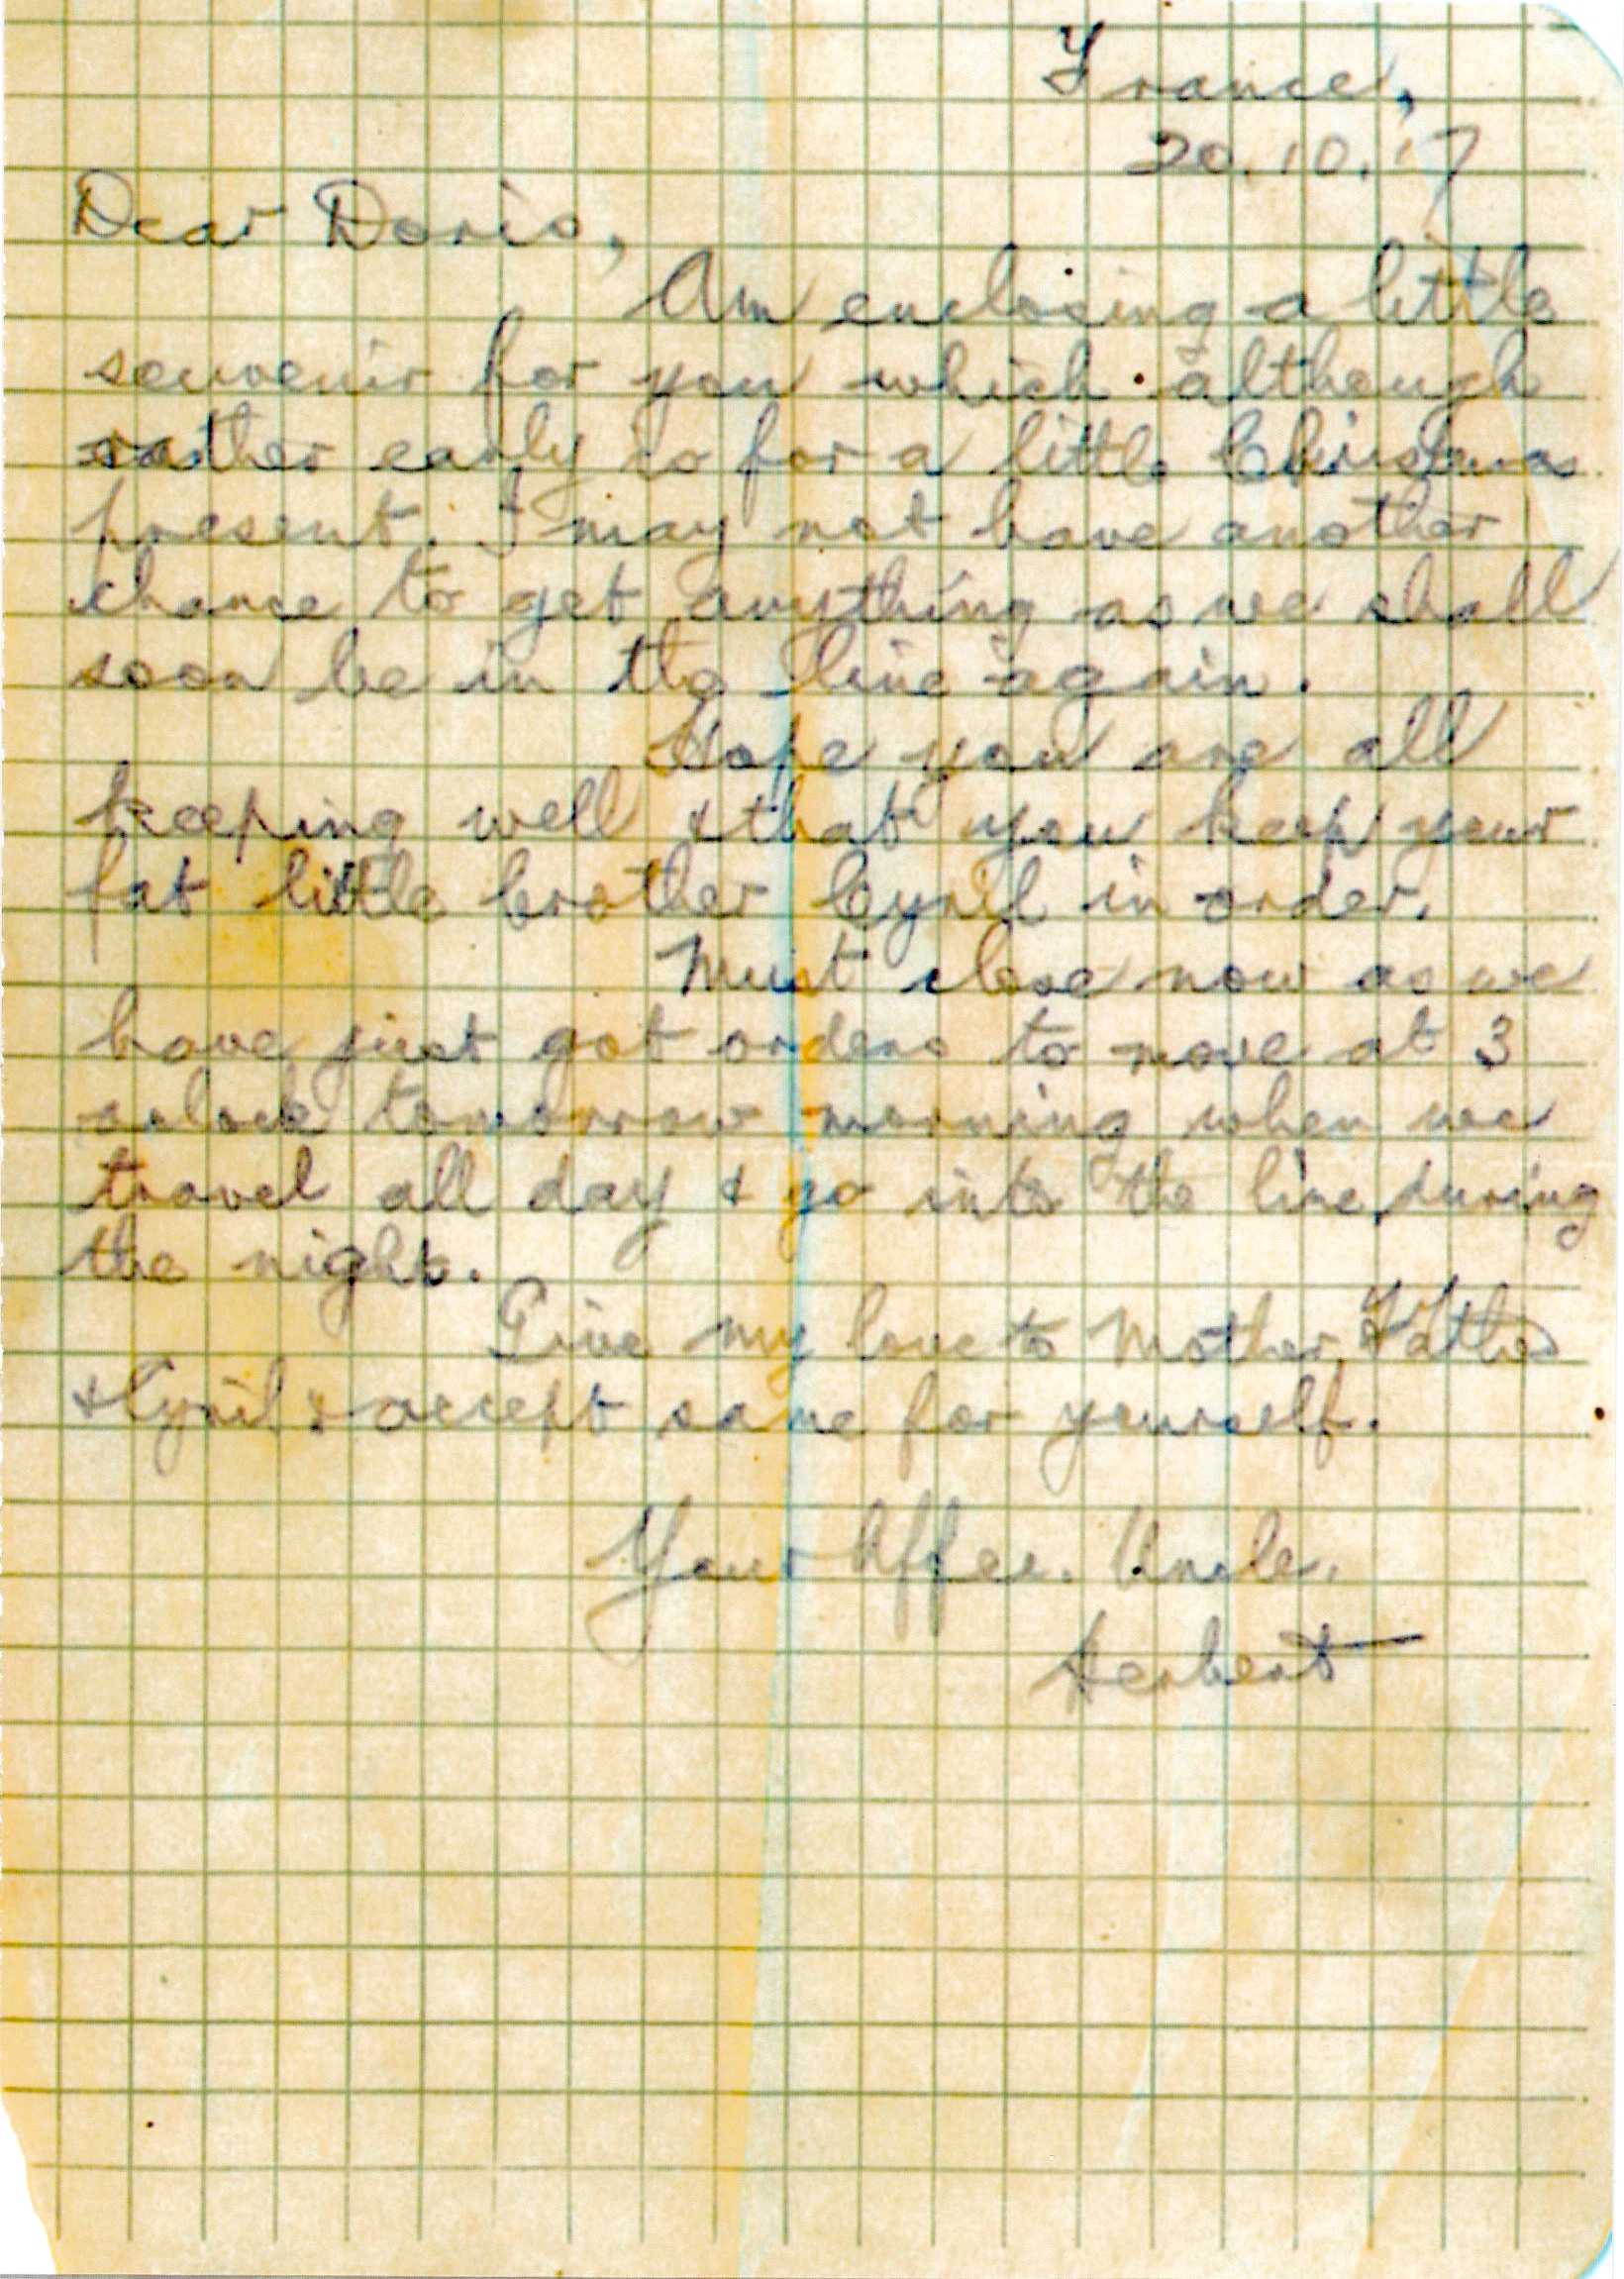 France,
20.10.17
Dear Doris,
Am enclosing a little
souvenir for you which although
rather early is for a little Christmas
present. I may not have another
chance to get anything as we shall
soon be in the line again.
Hope you are all
keeping well & that you keep your
fat little brother Cyril in order.
Must close now as we
have just got orders to move at 3
oclock tomorrow morning when we
travel all day & go into the line, during
the night.
Give my love to Mother, Father
& Cyril & accept same for yourself.
Your Affec. Uncle.
Herbert